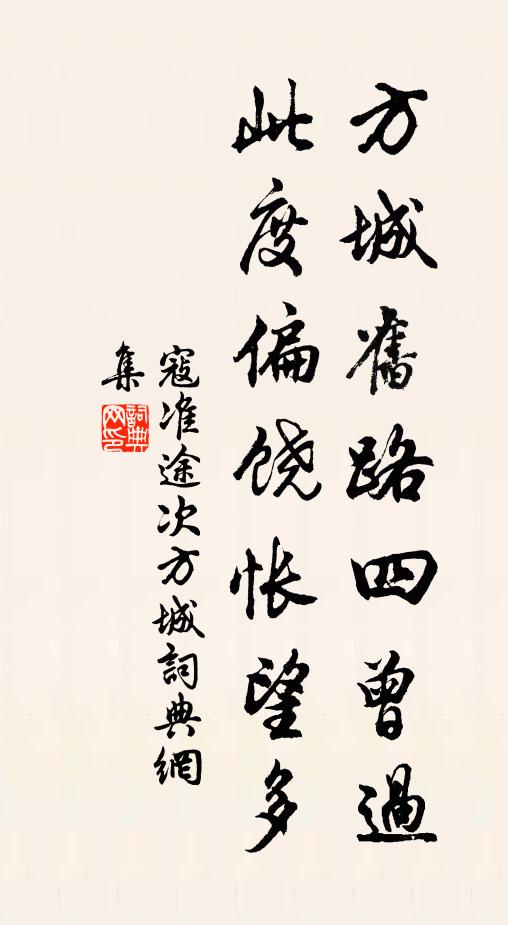 方城舊路四曾過
此度偏饶怅望多
寇准途次方城詞典網
集
詞典
网印